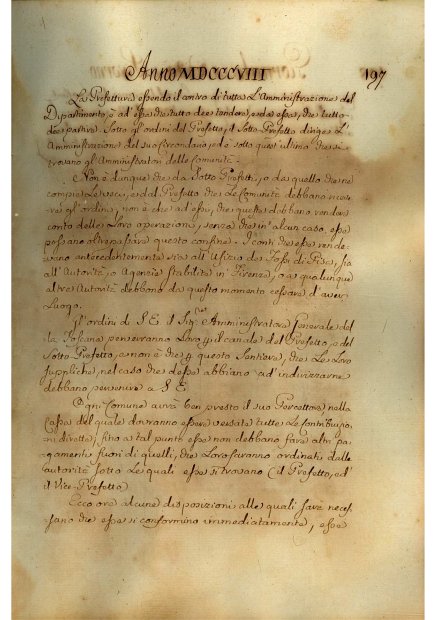 Anno MDCCCVIII
197
La Prefettura essendo il centro di tutta L'Amministrazione del
Dipartimento è ad essa che tutto dee tendere, e da essa, che tutto
dee partire. Sotto gl'ordini del Prefetto, il Sotto-Prefetto dirige L'
Amministrazione del suo Circondario, ed è sotto quest'ultimo che si
trovano gl'Amministratori delle Comunità.
Non è dunque che da Sotto Prefetti, o da quello che ne
compie Le veci, e dal Prefetto che Le Comunità debbano riceve
re gl'ordini, non è che ad essi, che queste debbano render
conto delle Loro operazioni, senza che in alcun caso, esse
possano oltrepassare questo confine. I conti che esse rende
vano antecedentemente sia all'Ufizio dei Fossi di Pisa, sia
all'Autorità, o Agenzie stabilite in Firenze, o a qualunque
altre Autorità debbono da questo momento cessare d'aver
Luogo.
Gl'ordini di S. E. il Sig.re Amministratore Generale del
la Toscana perverranno Loro per il canale del Prefetto, e del
Sotto Prefetto, e non è che per questo Sentiero, che Le Lo
suppliche, nel caso che esse abbiano ad indirizzarne
debbano pervenire a S. E.
Ogni Comune avrà ben presto il suo Percettore nella
Cassa del quale dovranno essere versate tutte Le Contribuzio
ni dirette, fino a tal punto esse non debbano fare altri pa
gamenti fuori di quelli, che Loro saranno ordinati dalle
autorità sotto Le quali esse si trovano (il Prefetto, ed
il Vice-Prefetto)
Ecco ora alcune disposizioni alle quali sarà neces
sario che esse si conformino immediatamente, esse